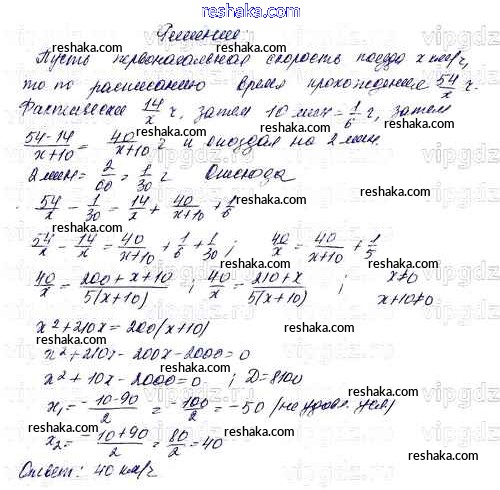 www.reshaka.com
Решение:
Пусть первоначальная скорость поезда x км/ч,
то по расписанию время прохождения 54/x ч.
Фактически 14/x ч, затем 10 мин = 1/6 ч, затем
(54-14)/(x+10) = 40/(x+10) ч и опоздал на 2 мин.
2 мин = 2/60 = 1/30 ч Отсюда
54/x - 1/30 = 14/x + 40/(x+10) + 1/6
54/x - 14/x = 40/(x+10) + 1/6 + 1/30 ; 40/x = 40/(x+10) + 1/5
40/x = (200+x+10)/(5(x+10)) ; 40/x = (210+x)/(5(x+10)) ; x≠0
x+10≠0
x²+210x = 200(x+10)
x²+210x-200x-2000=0
x²+10x-2000=0 ; D=8100
x₁ = (-10-90)/2 = -100/2 = -50 (не удовл. усл)
x₂ = (-10+90)/2 = 80/2 = 40
Ответ: 40 км/ч
reshaka.com
vipgdz.ru
www.reshaka.com